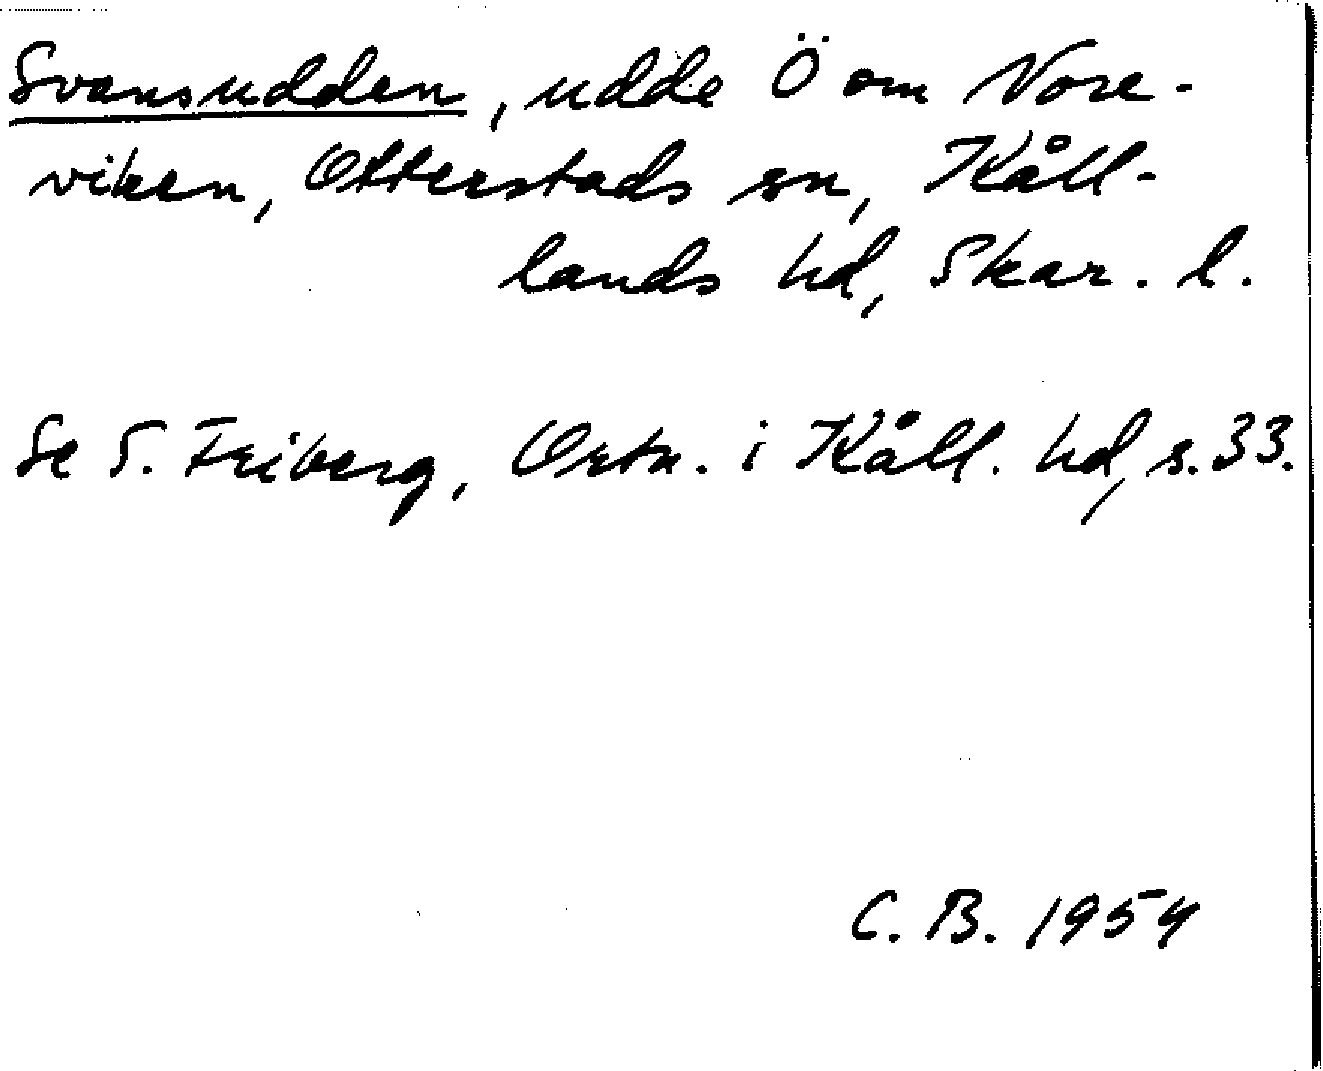 Svansudden, udde Ö om Nore-
viken, Otterstads sn, Kåll-
lands hd, Skar. l.
Se S. Friberg, Ortn. i Kåll. hd, s. 33.
C. B. 1954